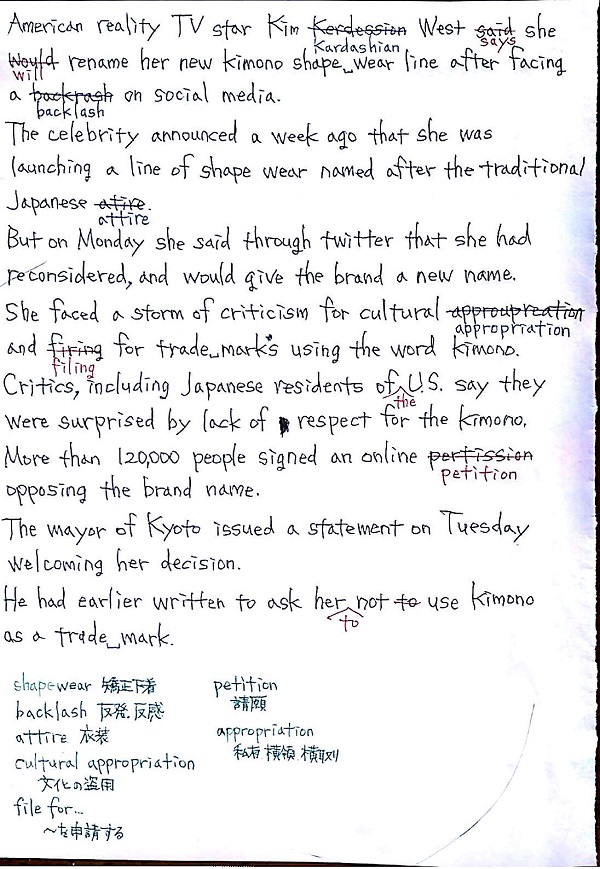 American reality TV star Kim Kerdession West said she
Kardashian says
Would rename her new kimono shape wear line after facing
will
a backrash on social media.
backlash
The celebrity announced a week ago that she was
launching a line of shape wear named after the traditional
Japanese atire.
attire
But on Monday she said through twitter that she had
reconsidered, and would give the brand a new name.
She faced a storm of criticism for cultural approupreation
appropriation
and firing for trade mark's using the word kimono.
filing
Critics, including Japanese residents of U.S. say they
the
were surprised by lack of respect for the kimono.
More than 120,000 people signed an online pertission
petition
opposing the brand name.
The mayor of Kyoto issued a statement on Tuesday
welcoming her decision.
He had earlier written to ask her not to use kimono
to
as a trade mark.
shapewear 矯正下着
backlash 反発, 反感
attire 衣装
cultural appropriation
文化の盗用
file for...
〜を申請する
petition
請願
appropriation
私有 横領 横取り